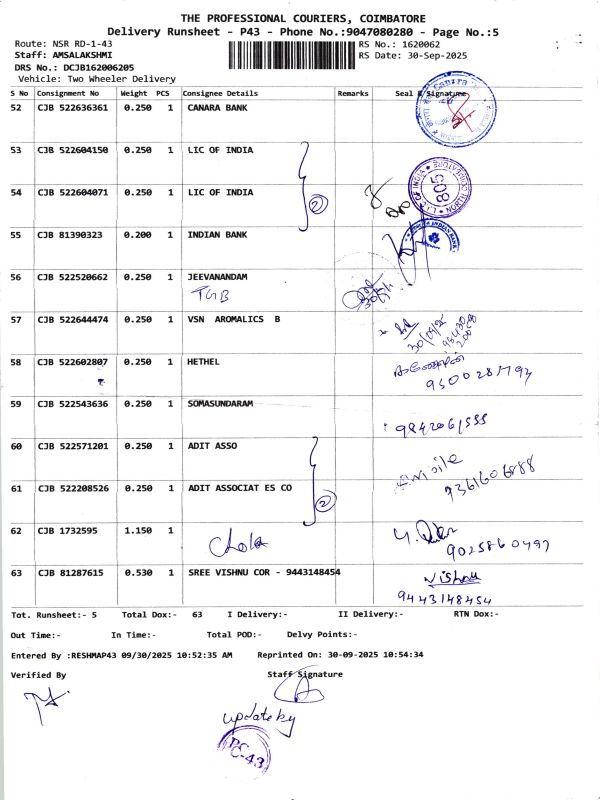 THE PROFESSIONAL COURIERS, COIMBATORE
Delivery Runsheet - P43 - Phone No.:9047080280 - Page No.:5
Route: NSR RD-1-43 RS No.: 1620062
Staff: AMSALAKSHMI RS Date: 30-Sep-2025
DRS No.: DCJB162006205
Vehicle: Two Wheeler Delivery
S No Consignment No Weight PCS Consignee Details Remarks Seal & Signature
52 CJB 522636361 0.250 1 CANARA BANK
53 CJB 522604150 0.250 1 LIC OF INDIA
54 CJB 522604071 0.250 1 LIC OF INDIA
2
L.I.C OF INDIA
805
55 CJB 81390323 0.200 1 INDIAN BANK
INDIAN BANK
56 CJB 522520662 0.250 1 JEEVANANDAM
57 CJB 522644474 0.250 1 VSN AROMALICS B
30/09/2
58 CJB 522602807 0.250 1 HETHEL
59 CJB 522543636 0.250 1 SOMASUNDARAM
60 CJB 522571201 0.250 1 ADIT ASSO
61 CJB 522208526 0.250 1 ADIT ASSOCIAT ES CO
2
62 CJB 1732595 1.150 1
Chola
63 CJB 81287615 0.530 1 SREE VISHNU COR - 9443148454
Vishnu
9443148454
Tot. Runsheet:- 5 Total Dox:- 63 I Delivery:- II Delivery:- RTN Dox:-
Out Time:- In Time:- Total POD:- Delvy Points:-
Entered By :RESHMAP43 09/30/2025 10:52:35 AM Reprinted On: 30-09-2025 10:54:34
Verified By Staff Signature
update by